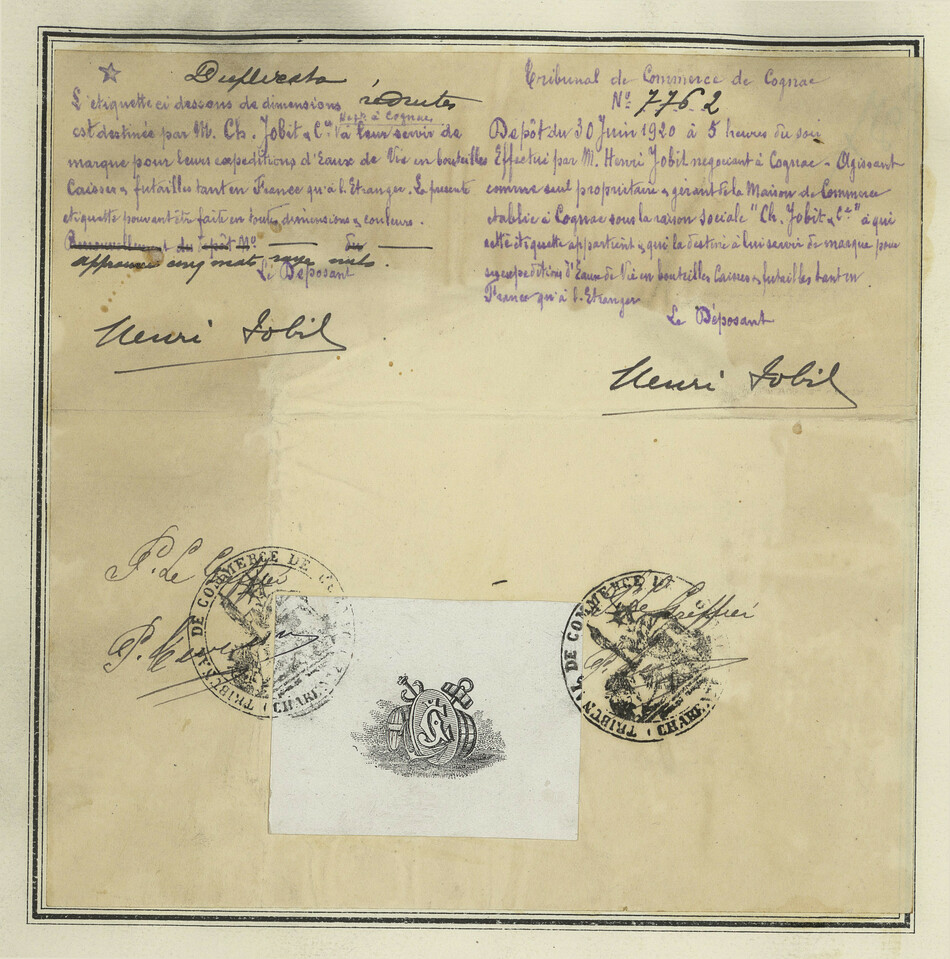 Duplicata
L'étiquette ci dessous de dimensions réduites
est destinée par M. Ch. Jobit & Cie Negts à Cognac à leur servir de
marque pour leurs expéditions d'Eaux de Vie en bouteilles
Caisses & futailles tant en France qu'à l'Etranger. La présente
etiquette pouvant être faite en toutes dimensions & couleurs.
Renouvellement du dépôt No du
approuvé cinq mots rayés nuls.
Le Déposant
Henri Jobit
Tribunal de Commerce de Cognac
No 7762
Dépôt du 30 Juin 1920 à 5 heures du soir
Effectué par M. Henri Jobit negociant à Cognac - Agissant
comme seul propriétaire & gérant de la Maison de Commerce
etablie à Cognac sous la raison sociale "Ch. Jobit & Cie" à qui
cette étiquette appartient & qui la destine à lui servir de marque pour
ses expéditions d'Eaux de Vie en bouteilles Caisses & futailles tant en
France qu'à l'Etranger
Le Déposant
Henri Jobit
P. le Greffier
TRIBUNAL DE COMMERCE DE
CHAREN
P. le Greffier
TRIBUNAL DE COMMERCE
CHAREN